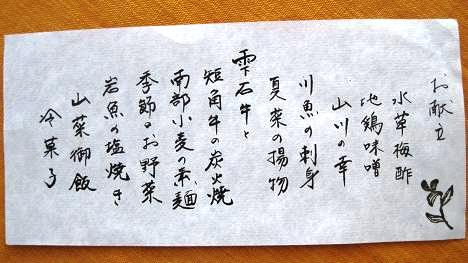 お献立
水草梅酢
地鶏味噌
山川の幸
川魚の刺身
夏菜の揚物
雫石牛と
短角牛の炭火焼
南部小麦の素麺
季節のお野菜
岩魚の塩焼き
山菜御飯
冷菓子